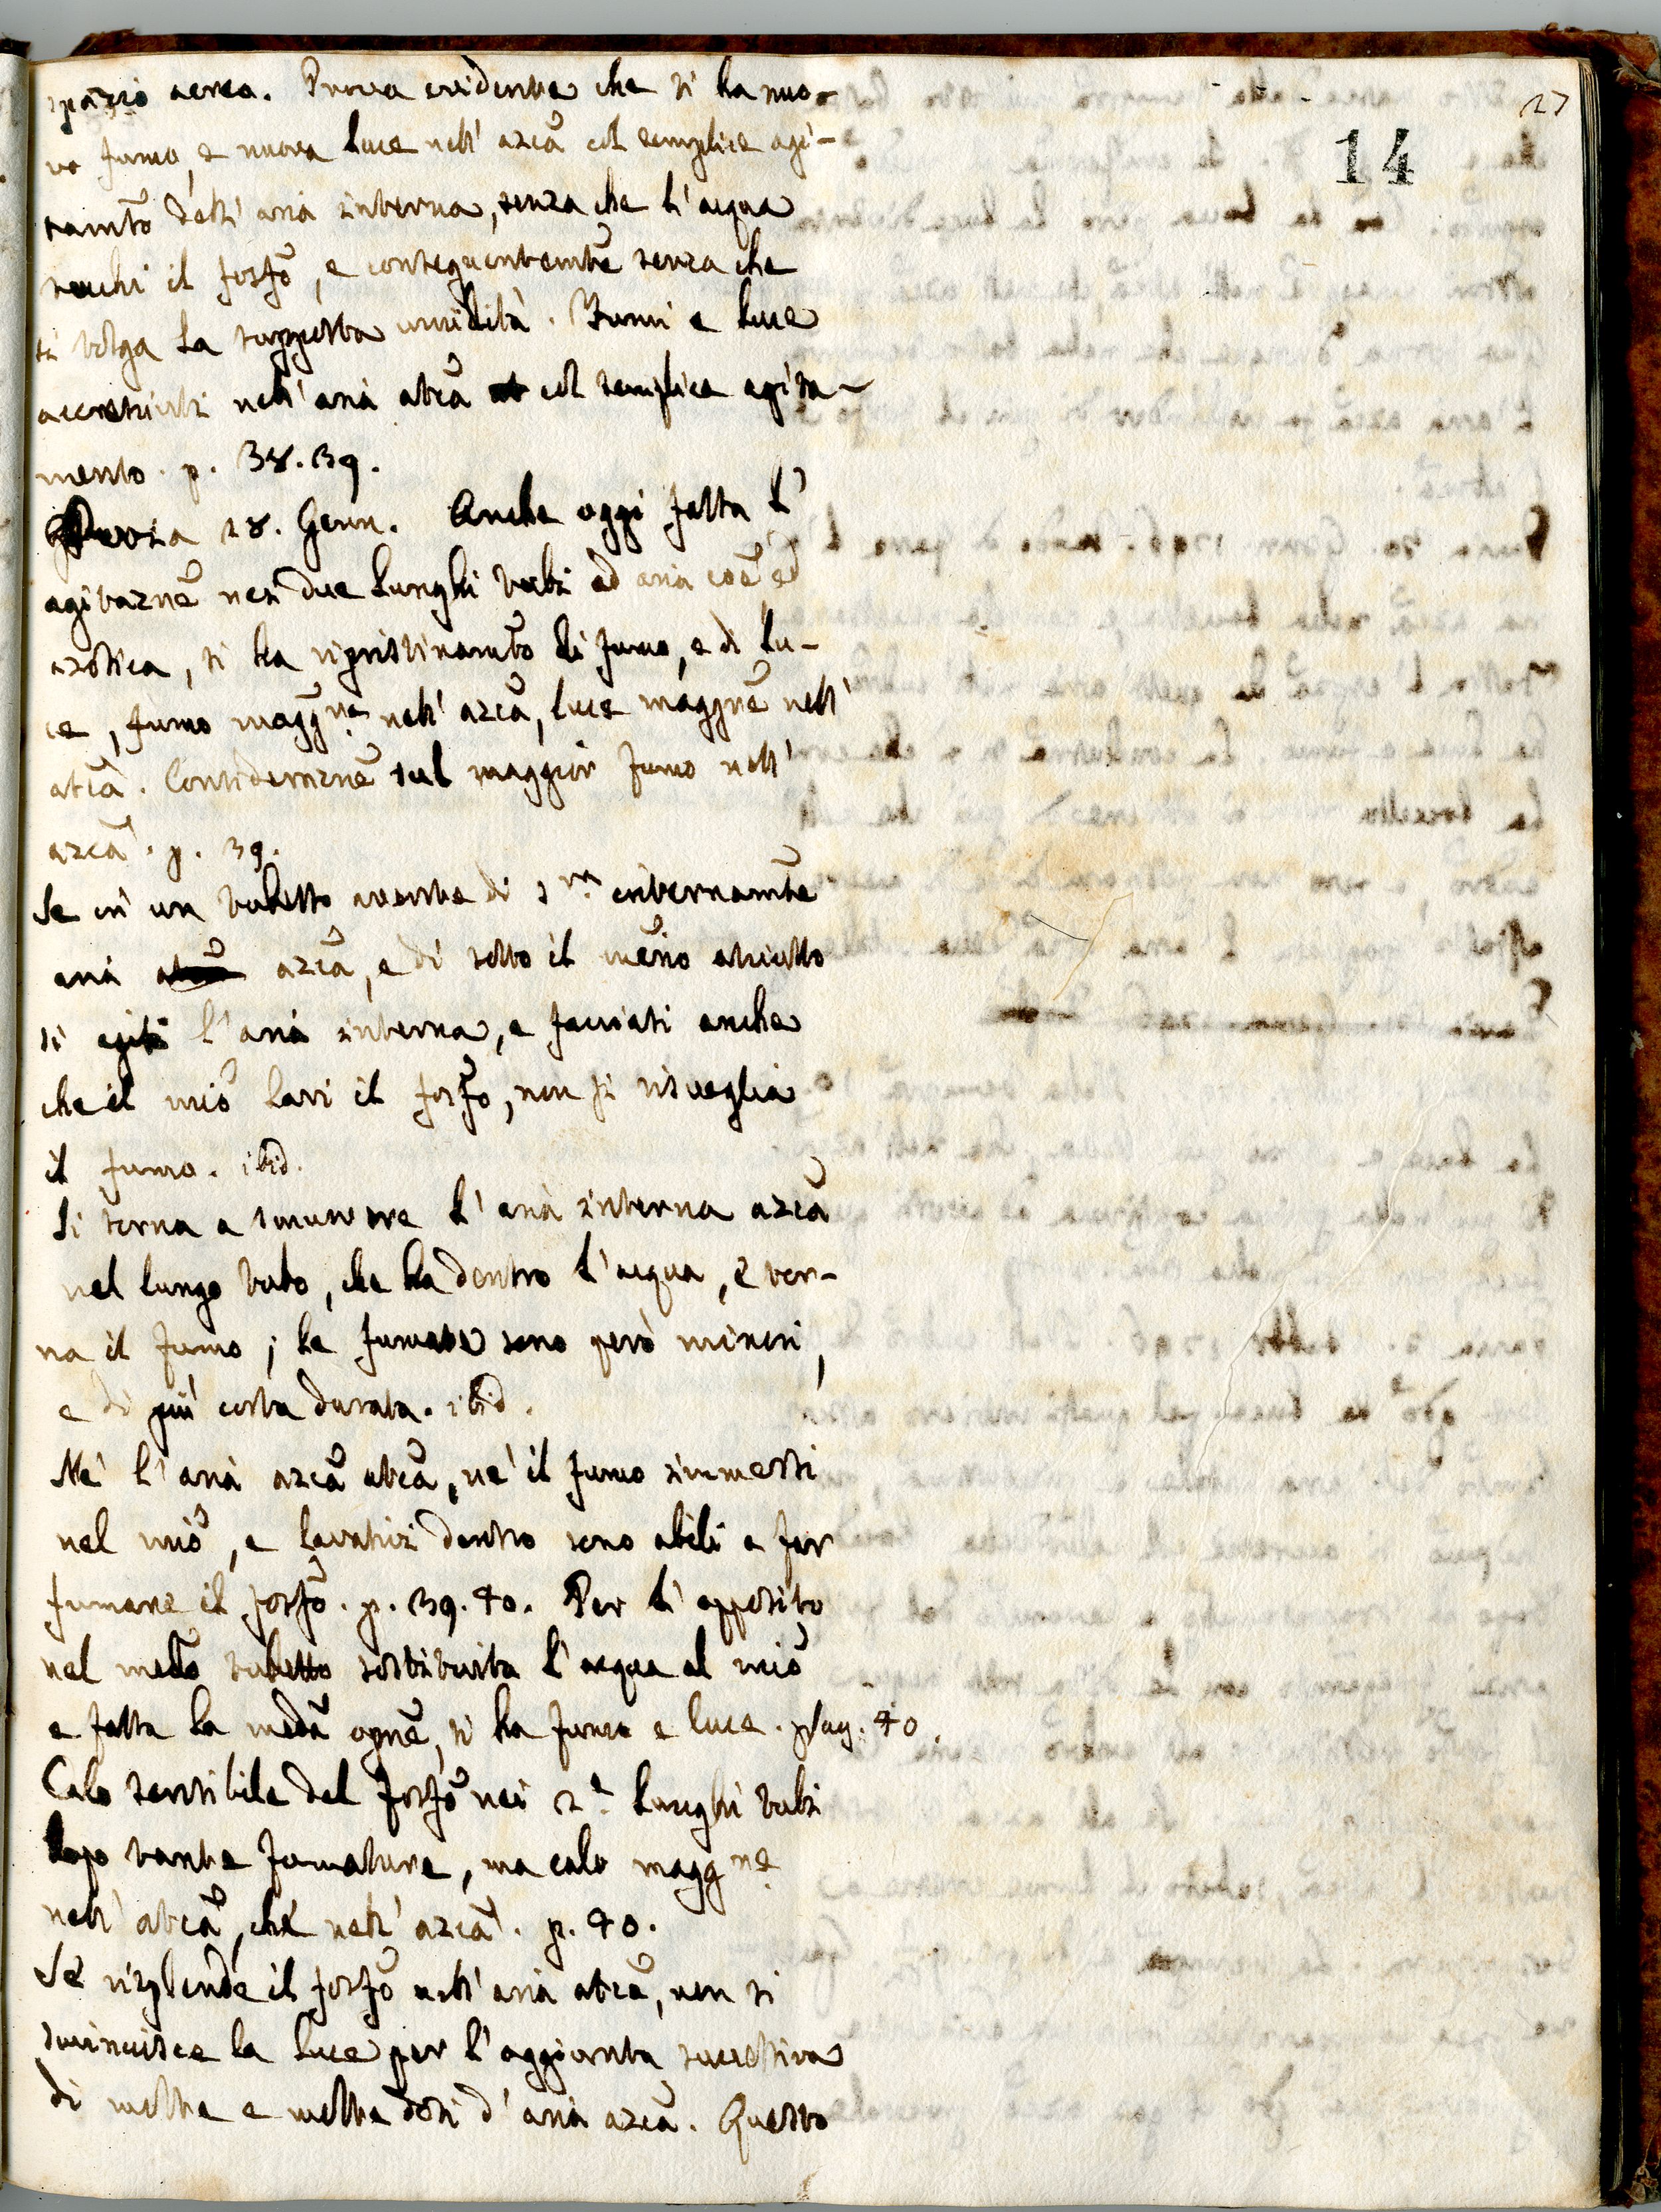 27
14
spazio aereo. Prova evidente che si ha nuo-
vo fumo, e nuova luce nell' azcã col semplice agi-
tamtõ dell' aria interna, senza che l' acqua
tocchi il fosfõ, e conseguentemtẽ senza che
si tolga la supposta umidità. Fumi e luce
accresciuti nell' aria atcã col semplice agita-
mento. p. 38. 39.
Pavia 28. Genn. Anche oggi fatta l'
agitaznẽ nei due lunghi tubi ad aria coẽ ed
azotica, si ha ripristinamtõ di fumo, e di lu-
ce, fumo maggre nell' azcã, luce maggrẽ nell'
atcã. Considerazznẽ sul maggior fumo nell'
azcã. p. 39.
Se in un tubetto avente di sra internamtẽ
aria azcã, e di sotto il merõ asciutto
si agiti l' aria interna, e facciasi anche
che il mriõ lavi il fosfõ, non si risveglia
il fumo. ibid.
Si torna a smuovere l' aria interna azcã
nel lungo tubo, che ha dentro l' acqua, e tor-
na il fumo; le fumate sono però minori,
e di più corta durata. ibid.
Nè l' aria azcã atcã, nè il fumo immersi
nel mriõ, e lavativi dentro sono abili a far
fumare il fosfõ. p. 39. 40. Per l' opposito
nel medõ tubetto sostituita l' acqua al mriõ
e fatta la medã opnẽ, si ha fumo e luce. pag. 40.
Calo sensibile del fosfõ nei 2. lunghi tubi
dopo tante fumature, ma calo maggre
nell' atcã, che nell' azcã. p. 40.
Se risplende il fosfõ nell' aria atcã, non si
sminuisce la luce per l' aggiunta successiva
di molte e molte dosi d' aria azcã. Questo